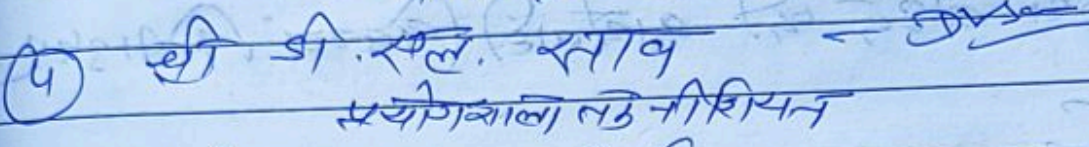 (५) श्री डी. एल. साव -
प्रयोगशाला तकनीशियन